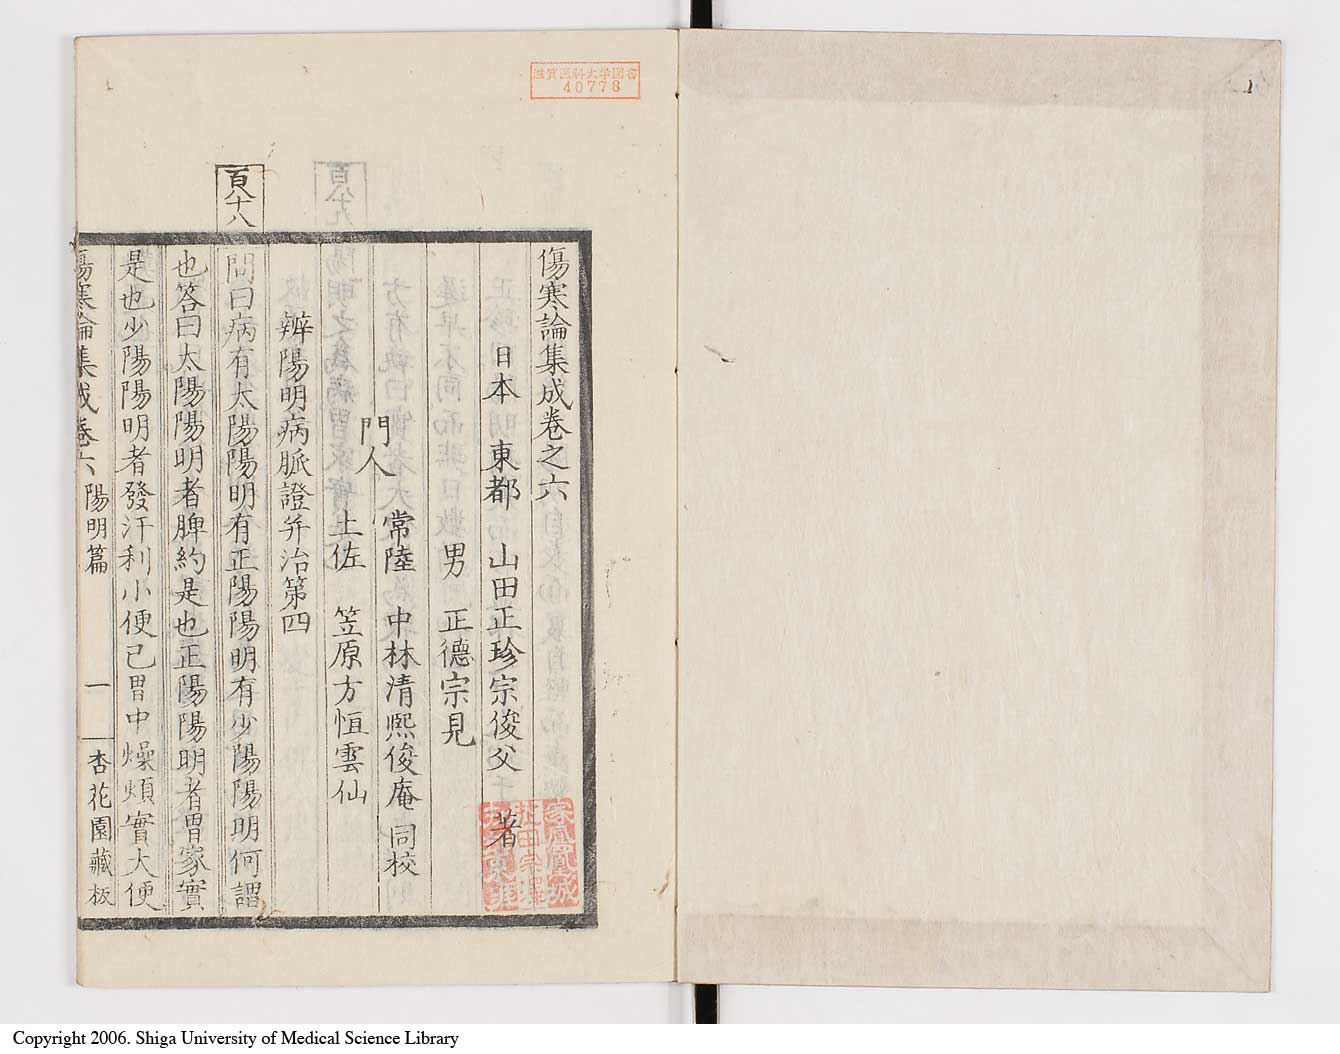 滋賀医科大学図書
40778
傷寒論集成卷之六
日本 東都 山田正珍宗俊父 著
男 正德宗見
門人 常陸 中林清熙俊庵 同校
土佐 笠原方恒雲仙
辨陽明病脈證并治第四
百八十八
問曰病有太陽陽明有正陽陽明有少陽陽明何謂
也答曰太陽陽明者脾約是也正陽陽明者胃家實
是也少陽陽明者發汗利小便已胃中燥煩實大便
傷寒論集成卷六 陽明篇 一 杏花園藏板
百八十九
Copyright 2006. Shiga University of Medical Science Library